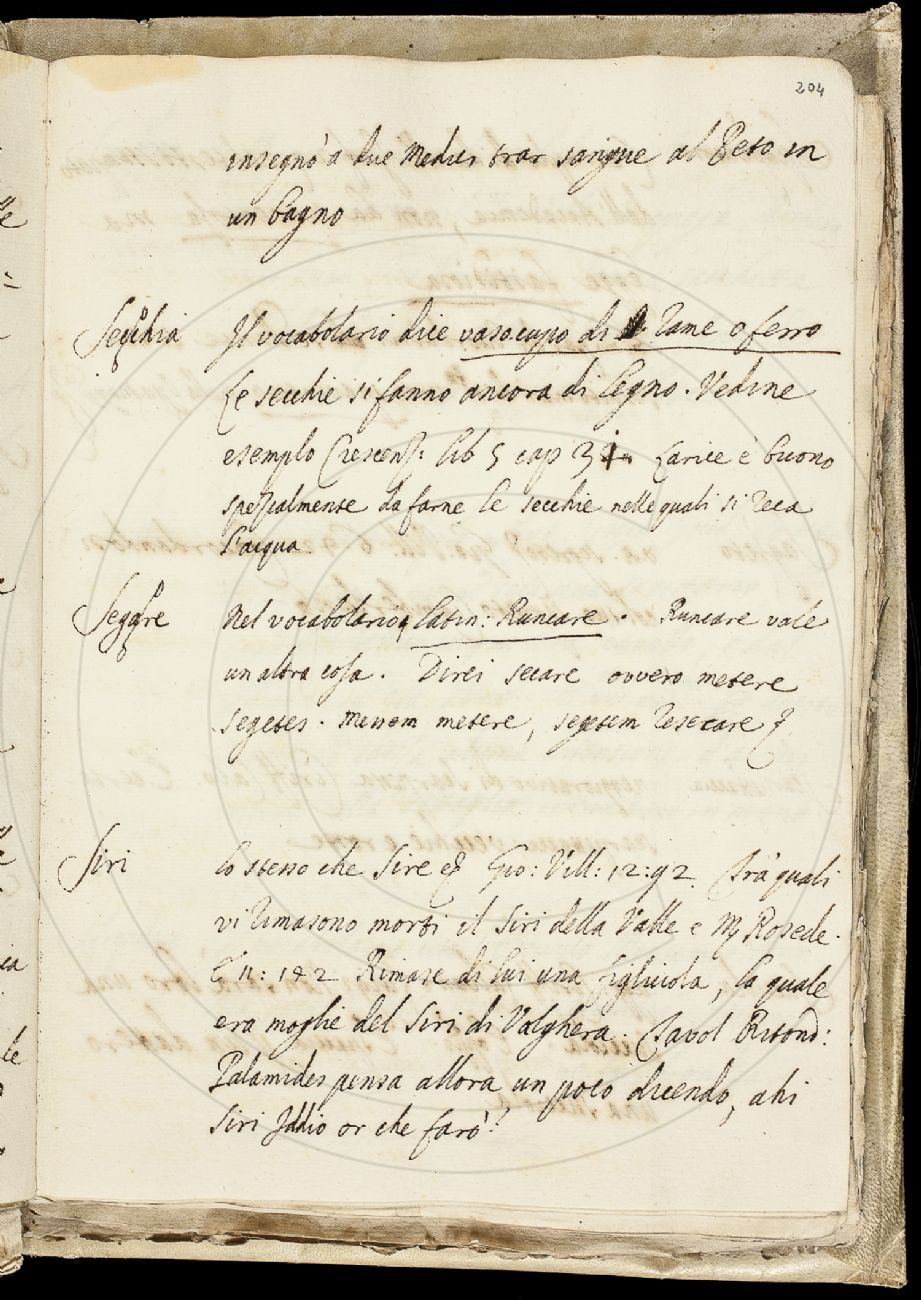 204
insegnò a due Medici trar sangue al Peto in
un bagno
Secchia Il vocabolario dice vaso cupo di Rame o ferro
Le secchie si fanno ancora di legno. Vedine
esempio Crescenz: lib 5 cap 3 Larice è buono
spezialmente da farne le secchie nelle quali si reca
l'acqua
Segare Nel vocabolario, latin: Runcare. Runcare vale
un altra cosa. Direi secare ovvero metere
segetes. messem metere, segetem resecare
Siri lo stesso che Sire Gio: Vill: 12:92. Tra quali
vi rimasono morti il Siri della Valle e Rosede.
E n: 142 Rimase di lui una figliuola, la quale
era moglie del Siri di Valghera. Tavol Ritond:
Palamides pensa allora un poco dicendo, ahi
Siri Iddio or che farò?